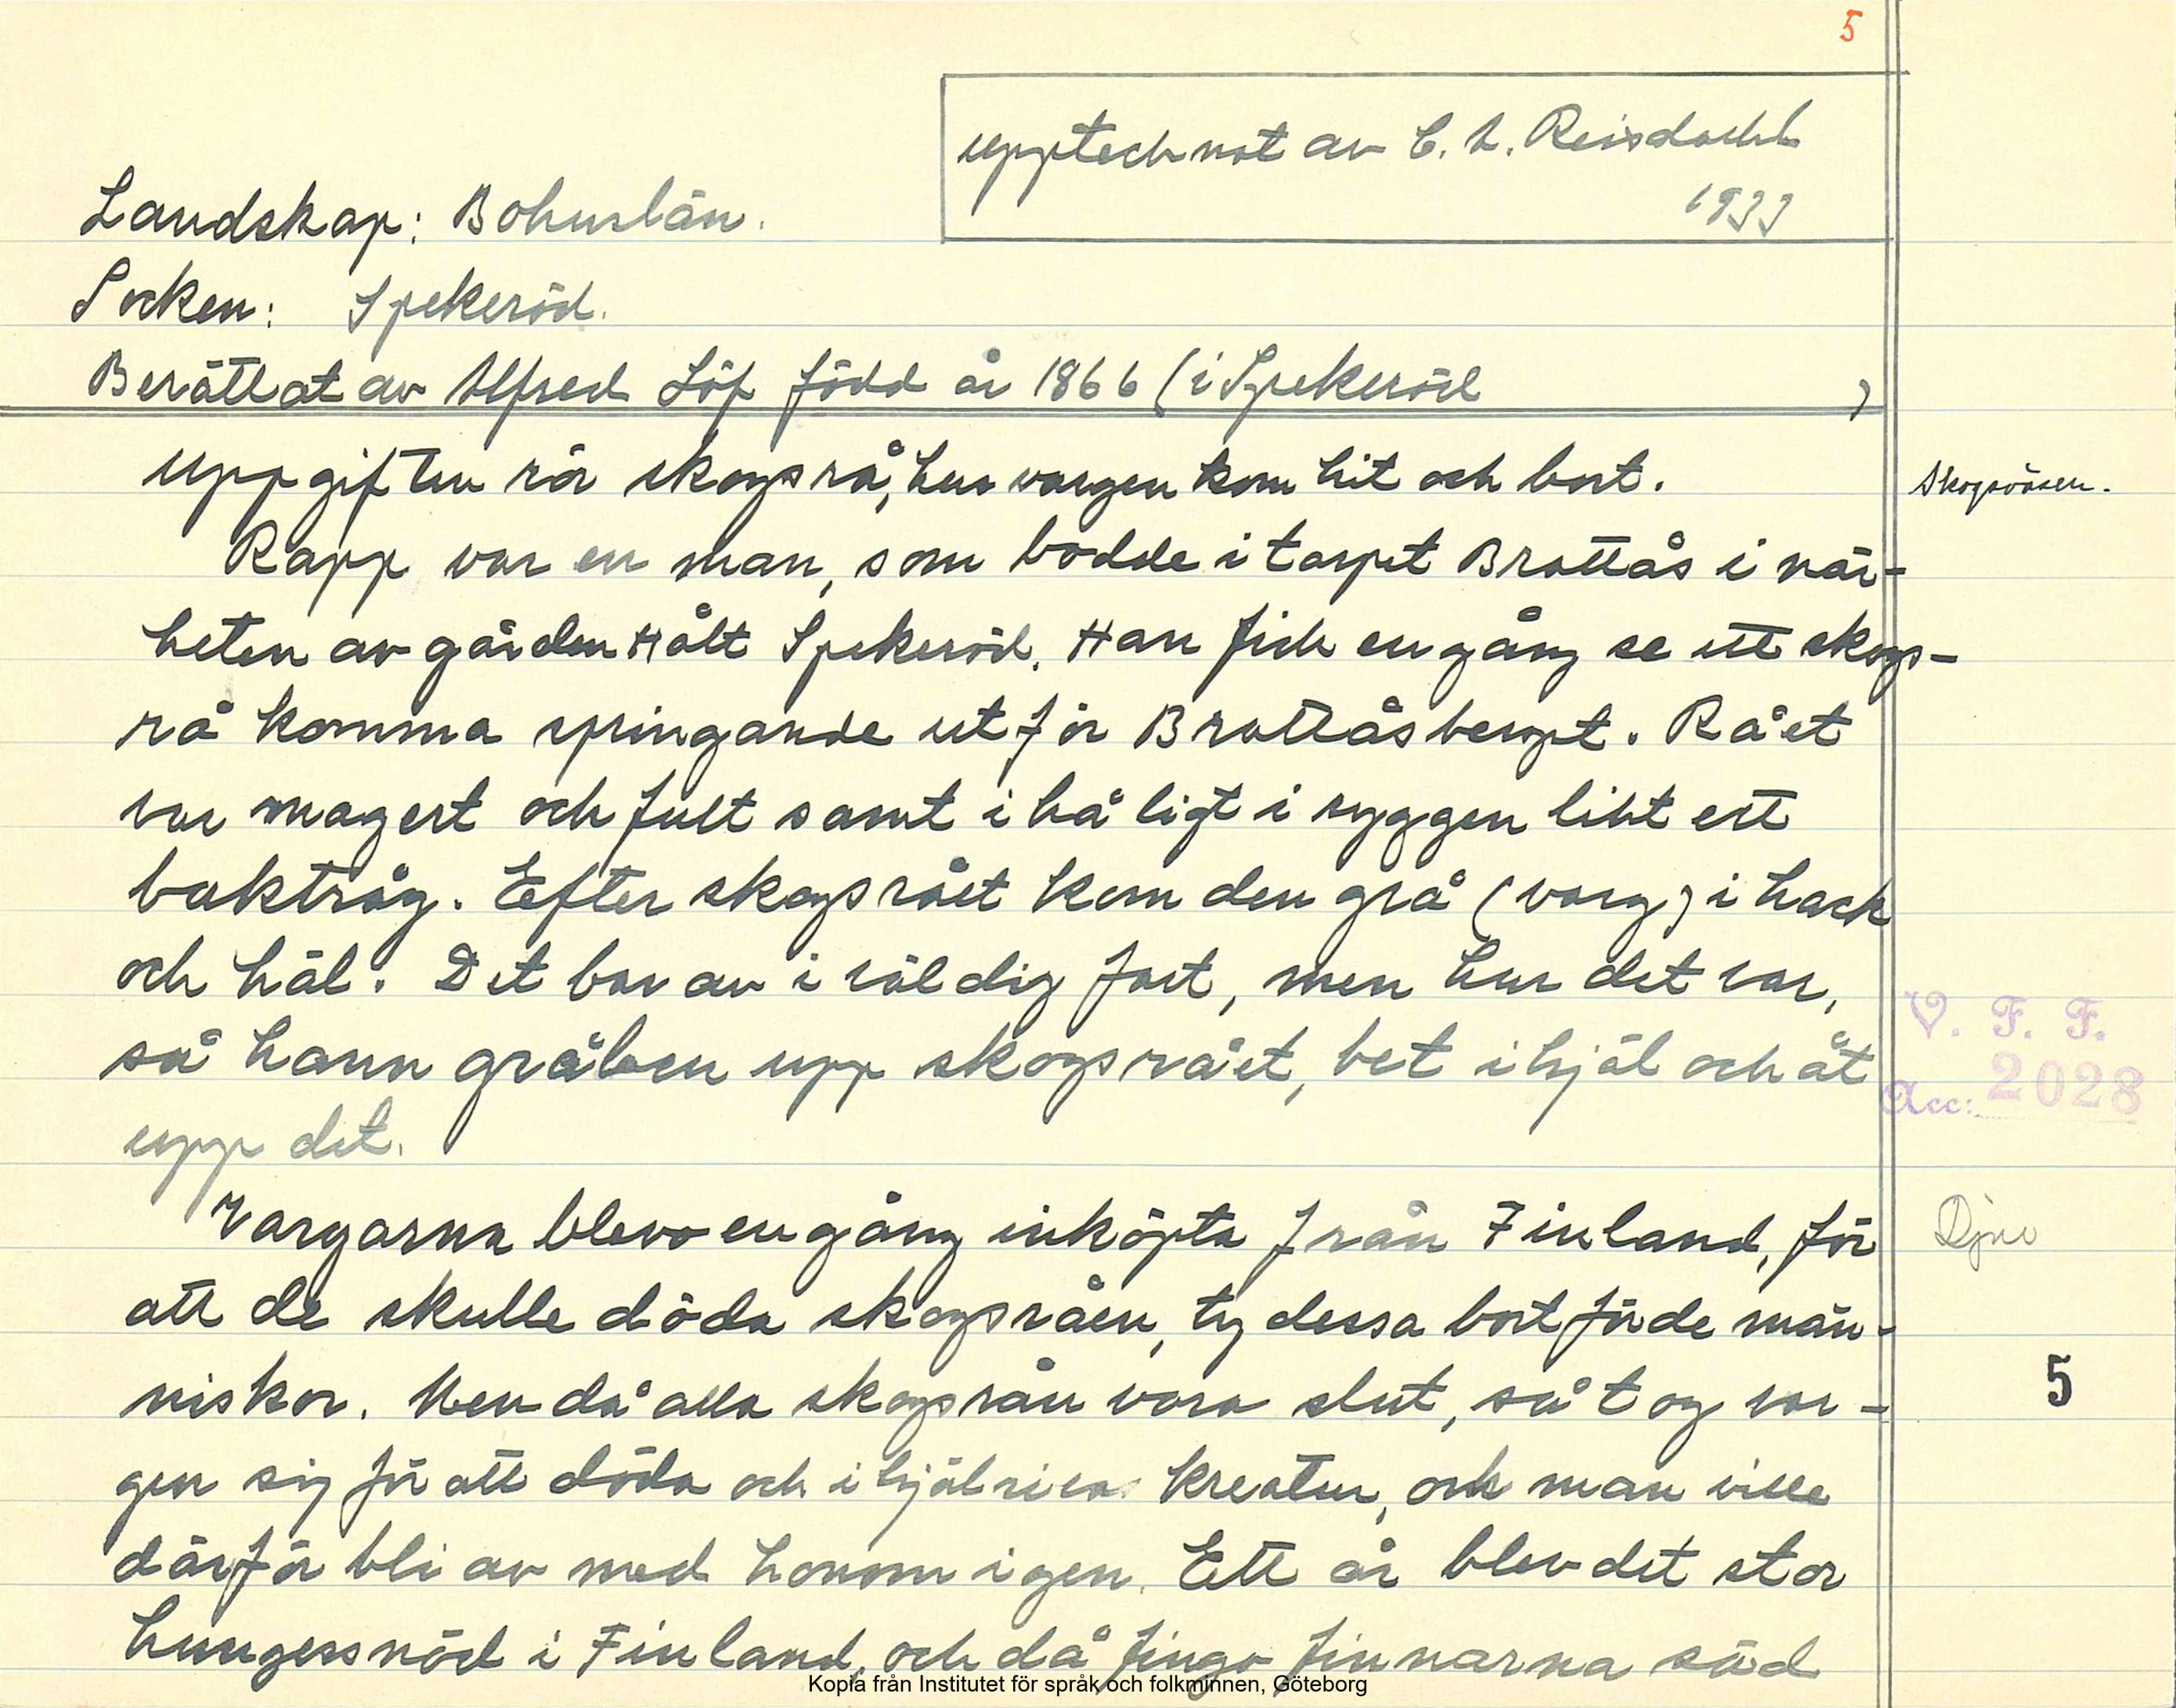 5
upptecknat av C. L. Reisdoehl
1933
Landskap: Bohuslän.
Socken: Spekeröd.
Berättat av Alfred Löf född år 1866 (i Spekeröd )
Uppgiften rör skogsrå, hur vargen kom hit och bort.
Skogsväsen.
Rapp var en man, som bodde i torpet Brattås i när-
heten av gården Hålt Spekeröd. Han fick en gång se ett skogs-
rå komma springande utför Brattåsberget. Rået
var magert och fult samt ihåligt i ryggen likt ett
baktråg. Efter skogsrået kom den grå (varg) i hack
och häl. Det bar av i väldig fart, men hur det var,
så hann gråben upp skogsrået, bet ihjäl och åt
upp det.
V. F. F.
Acc: 2028
Vargarna blevo en gång inköpta från Finland, för
Djur
att de skulle döda skogsråen, ty dessa bortförde män-
niskor. Men då alla skogsrån voro slut, så tog var-
5
gen sig för att döda och ihjälriva kreatur, och man ville
därför bli av med honom igen. Ett år blev det stor
hungersnöd i Finland, och då fingo finnarna säd
Kopia från Institutet för språk och folkminnen, Göteborg